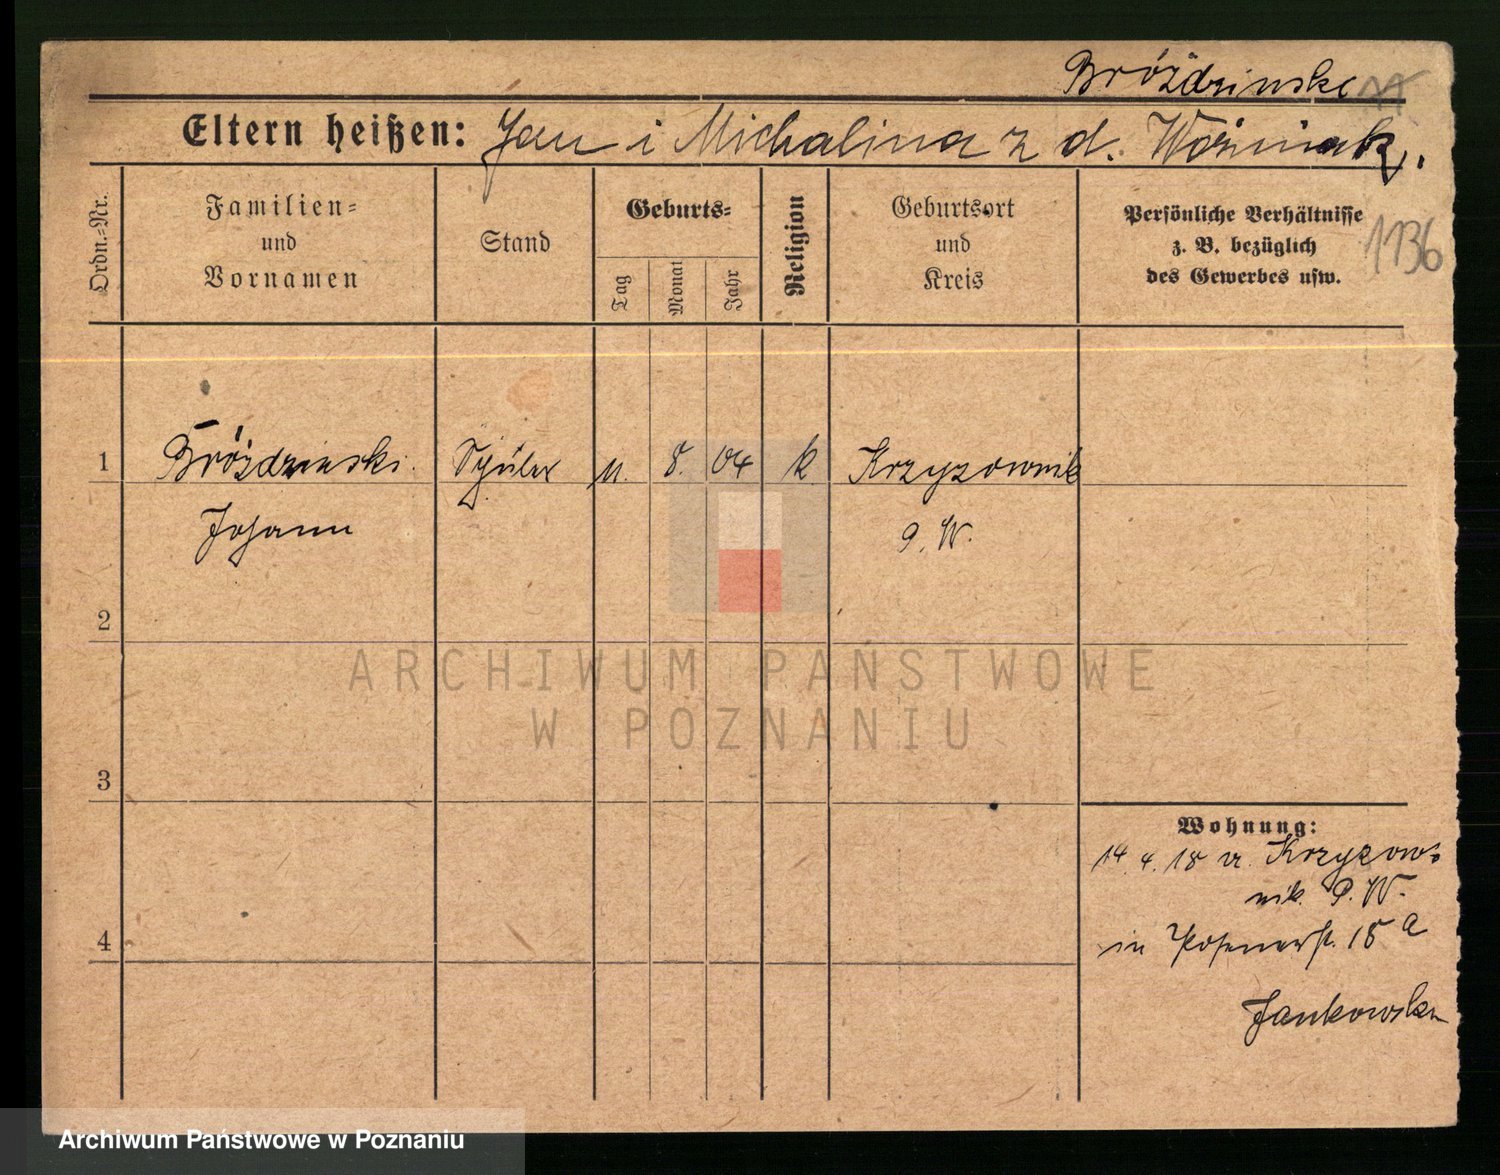 Bróździnski
Eltern heißen: Jan i Michalina z d. Woźniak.
Ordn.-Nr.
Familien-
und
Vornamen
Stand
Geburts-
Tag
Monat
Jahr
Religion
Geburtsort
und
Kreis
Persönliche Verhältnisse
z. B. bezüglich
des Gewerbes usw.
1136
1 Bróździnski Schüler 11. 8. 04 k. Krzyzownik
Johann P. W.
2
3
4
Wohnung:
14. 4. 18 v. Krzyzow-
nik P. W.
in Posenerst. 18 a
Jankowska
ARCHIWUM PAŃSTWOWE
W POZNANIU
Archiwum Państwowe w Poznaniu